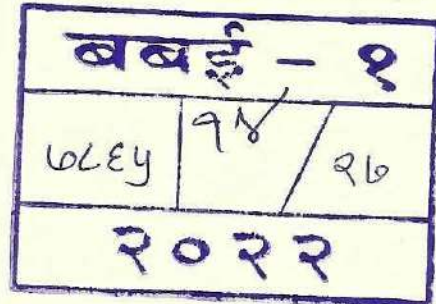 बबई - १
७८६५ १४ / २७
२०२२